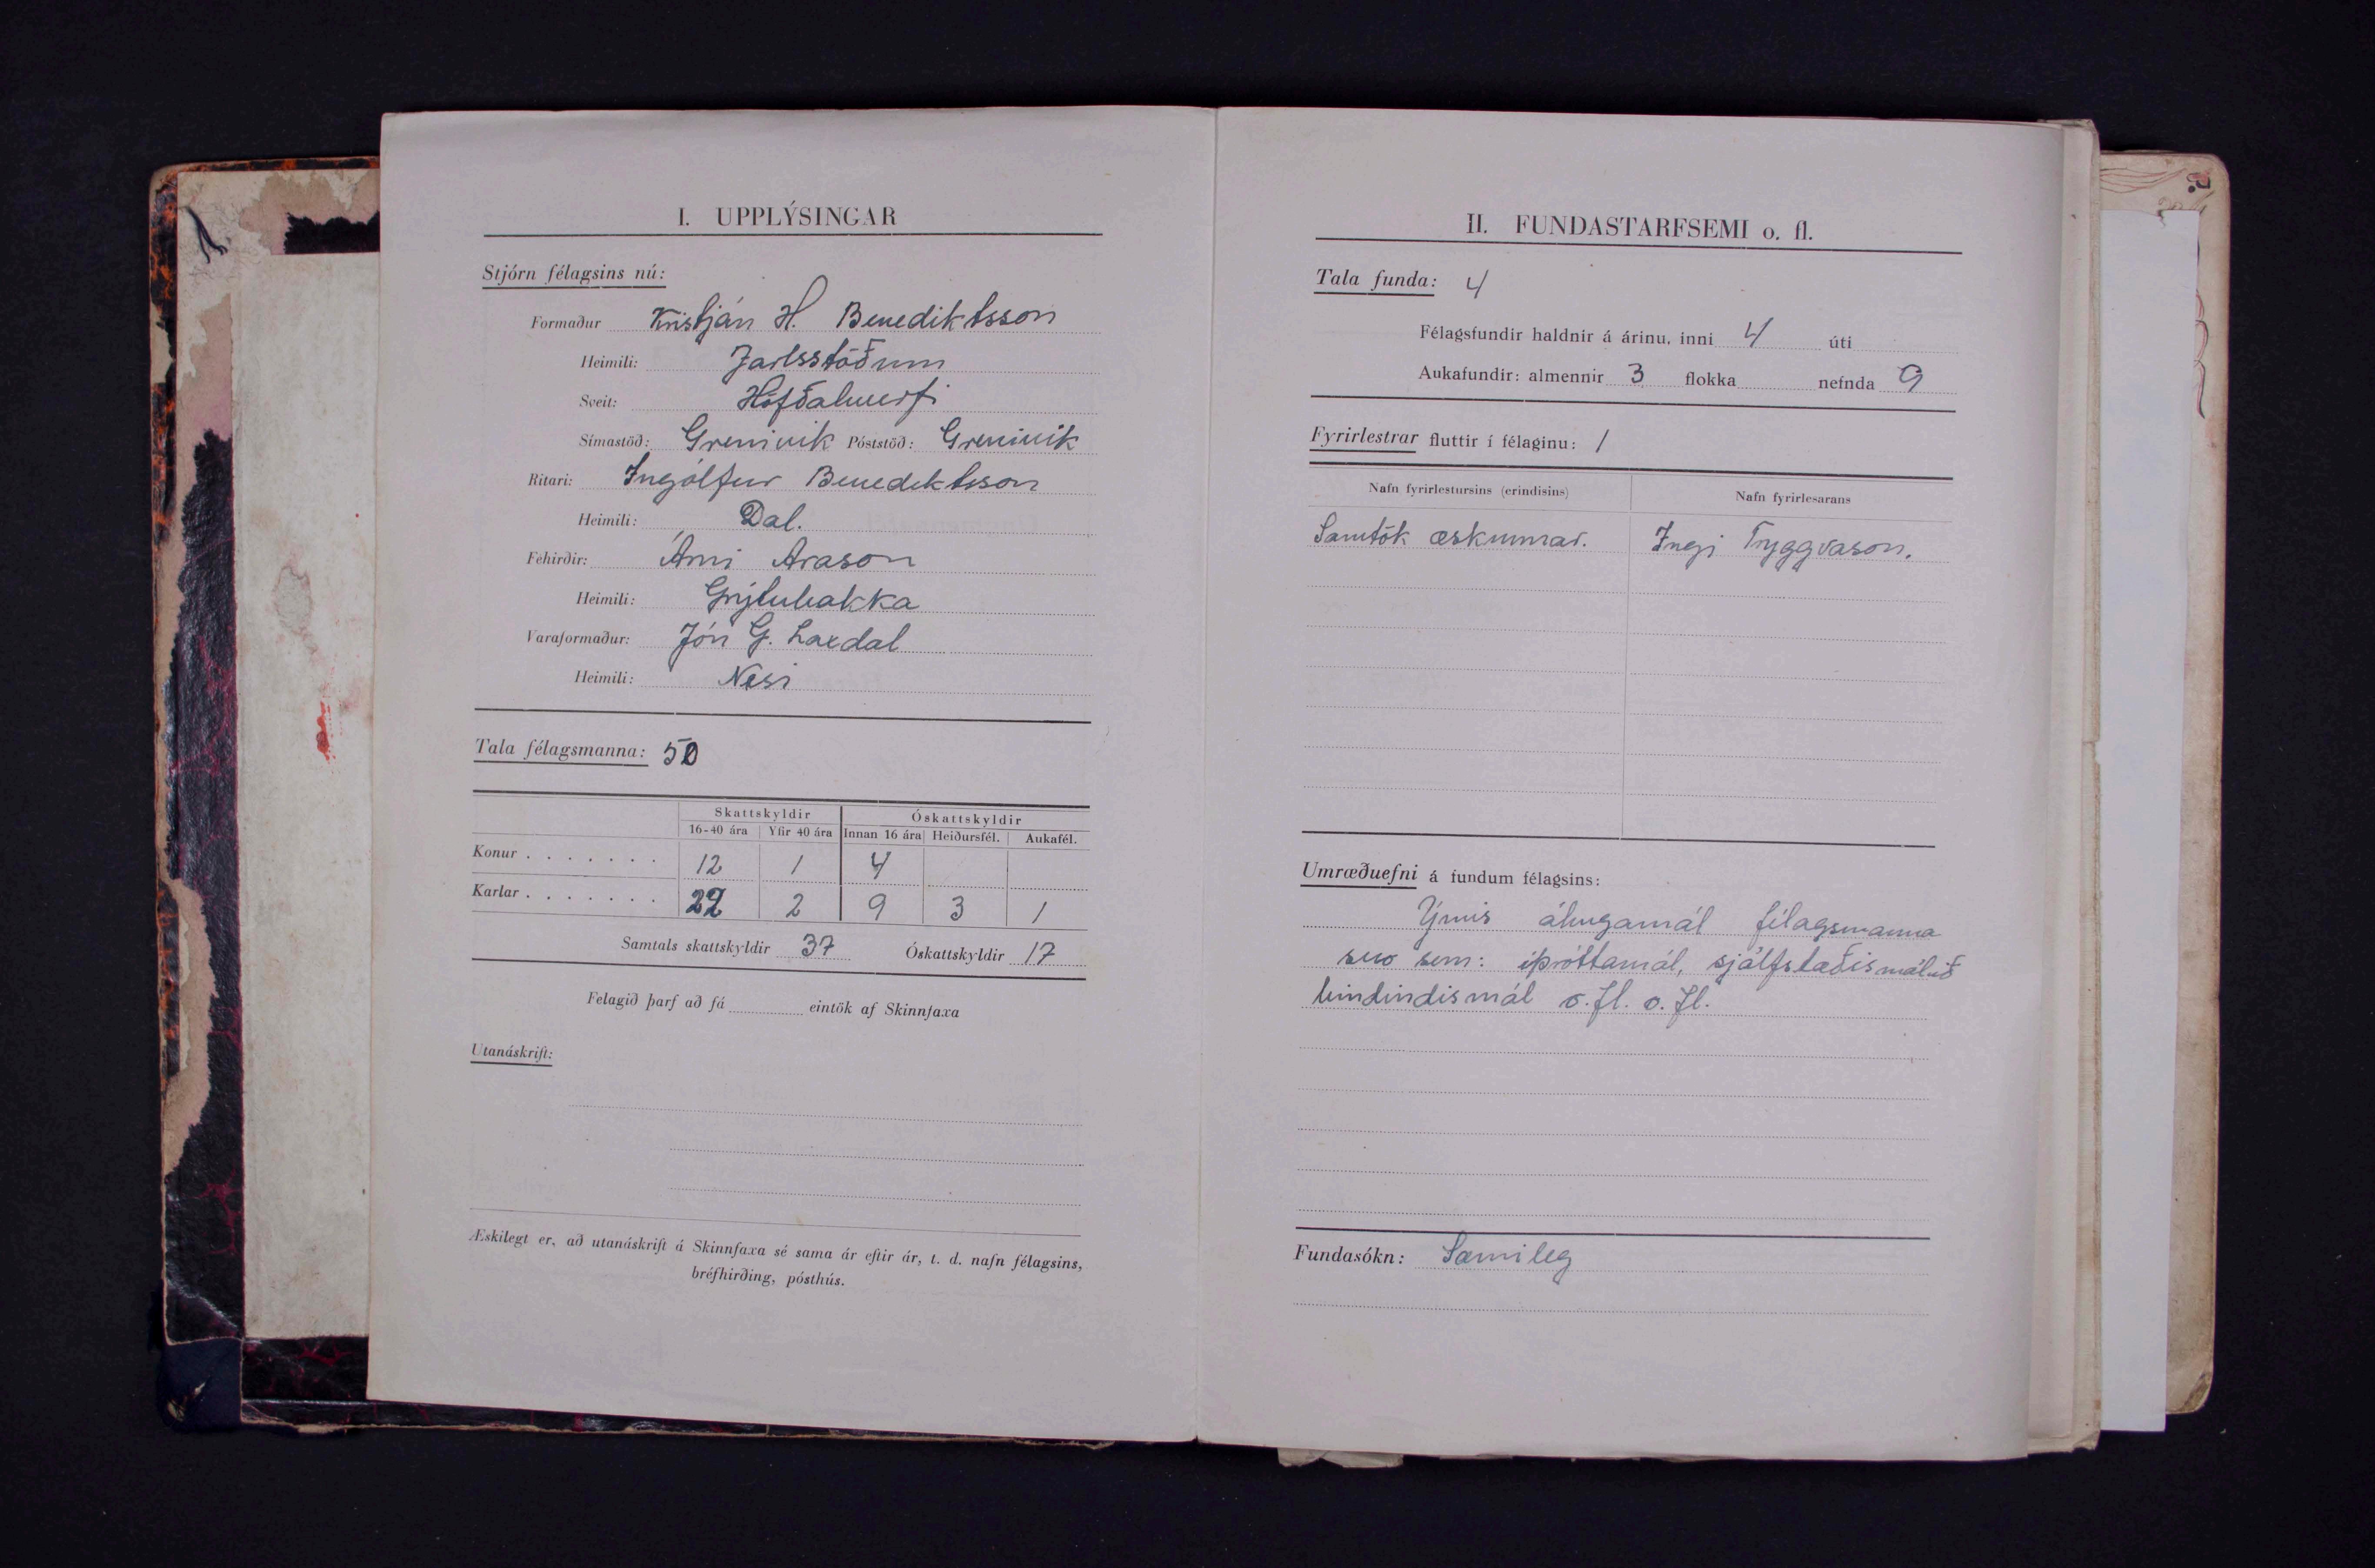 I. UPPLÝSINGAR
Stjórn félagsins nú:
Formaður Kristján H. Benediktsson
Heimili: Jarlsstöðum
Sveit: Höfðahverfi
Símastöð: Grenivik Póststöð: Grenivik
Ritari: Ingólfur Benediktsson
Heimili: Dal.
Féhirðir: Árni Arason
Heimili: Grýtubakka
Varaformaður: Jón G. Laxdal
Heimili: Nesi
Tala félagsmanna: 50
Skattskyldir Óskattskyldir
16-40 ára Yfir 40 ára Innan 16 ára Heiðursfél. Aukafél.
Konur . . . . . . . 12 1 4
Karlar . . . . . . . 22 2 9 3 1
Samtals skattskyldir 37 Óskattskyldir 17
Felagið þarf að fá eintök af Skinnfaxa
Utanáskrift:
Æskilegt er, að utanáskrift á Skinnfaxa sé sama ár eftir ár, t. d. nafn félagsins,
bréfhirðing, pósthús.
II. FUNDASTARFSEMI o. fl.
Tala funda: 4
Félagsfundir haldnir á árinu, inni 4 úti
Aukafundir: almennir 3 flokka nefnda 9
Fyrirlestrar fluttir í félaginu: 1
Nafn fyrirlestursins (erindisins) Nafn fyrirlesarans
Samtök æskunnar. Ingi Tryggvason.
Umræðuefni á fundum félagsins:
Ýmis áhugamál félagsmanna
svo sem: íþróttamál, sjálfstæðismálið
bindindismál o.fl. o.fl.
Fundasókn: Sæmileg